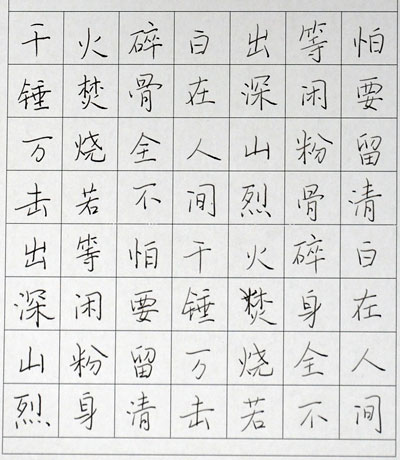 千锤万击出深山烈
火焚烧若等闲粉身
碎骨全不怕要留清
白在人间千锤万击
出深山烈火焚烧若
等闲粉骨碎身全不
怕要留清白在人间